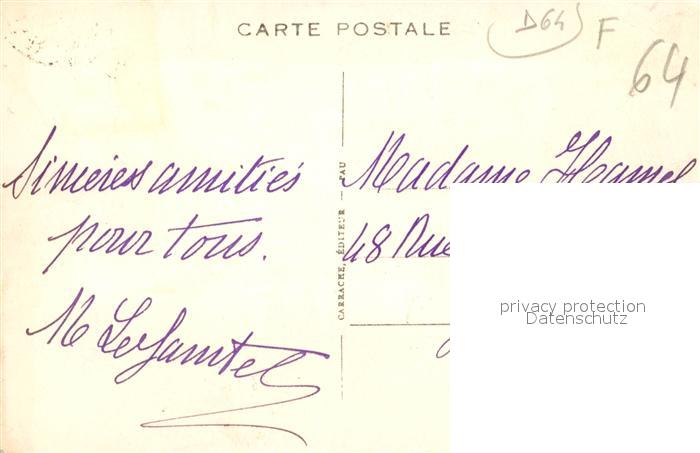 CARTE POSTALE
D64
F
64
Sincères amitiés
pour tous.
M
CARRACHE, ÉDITEUR — PAU
Madame
48 Rue
privacy protection
Datenschutz